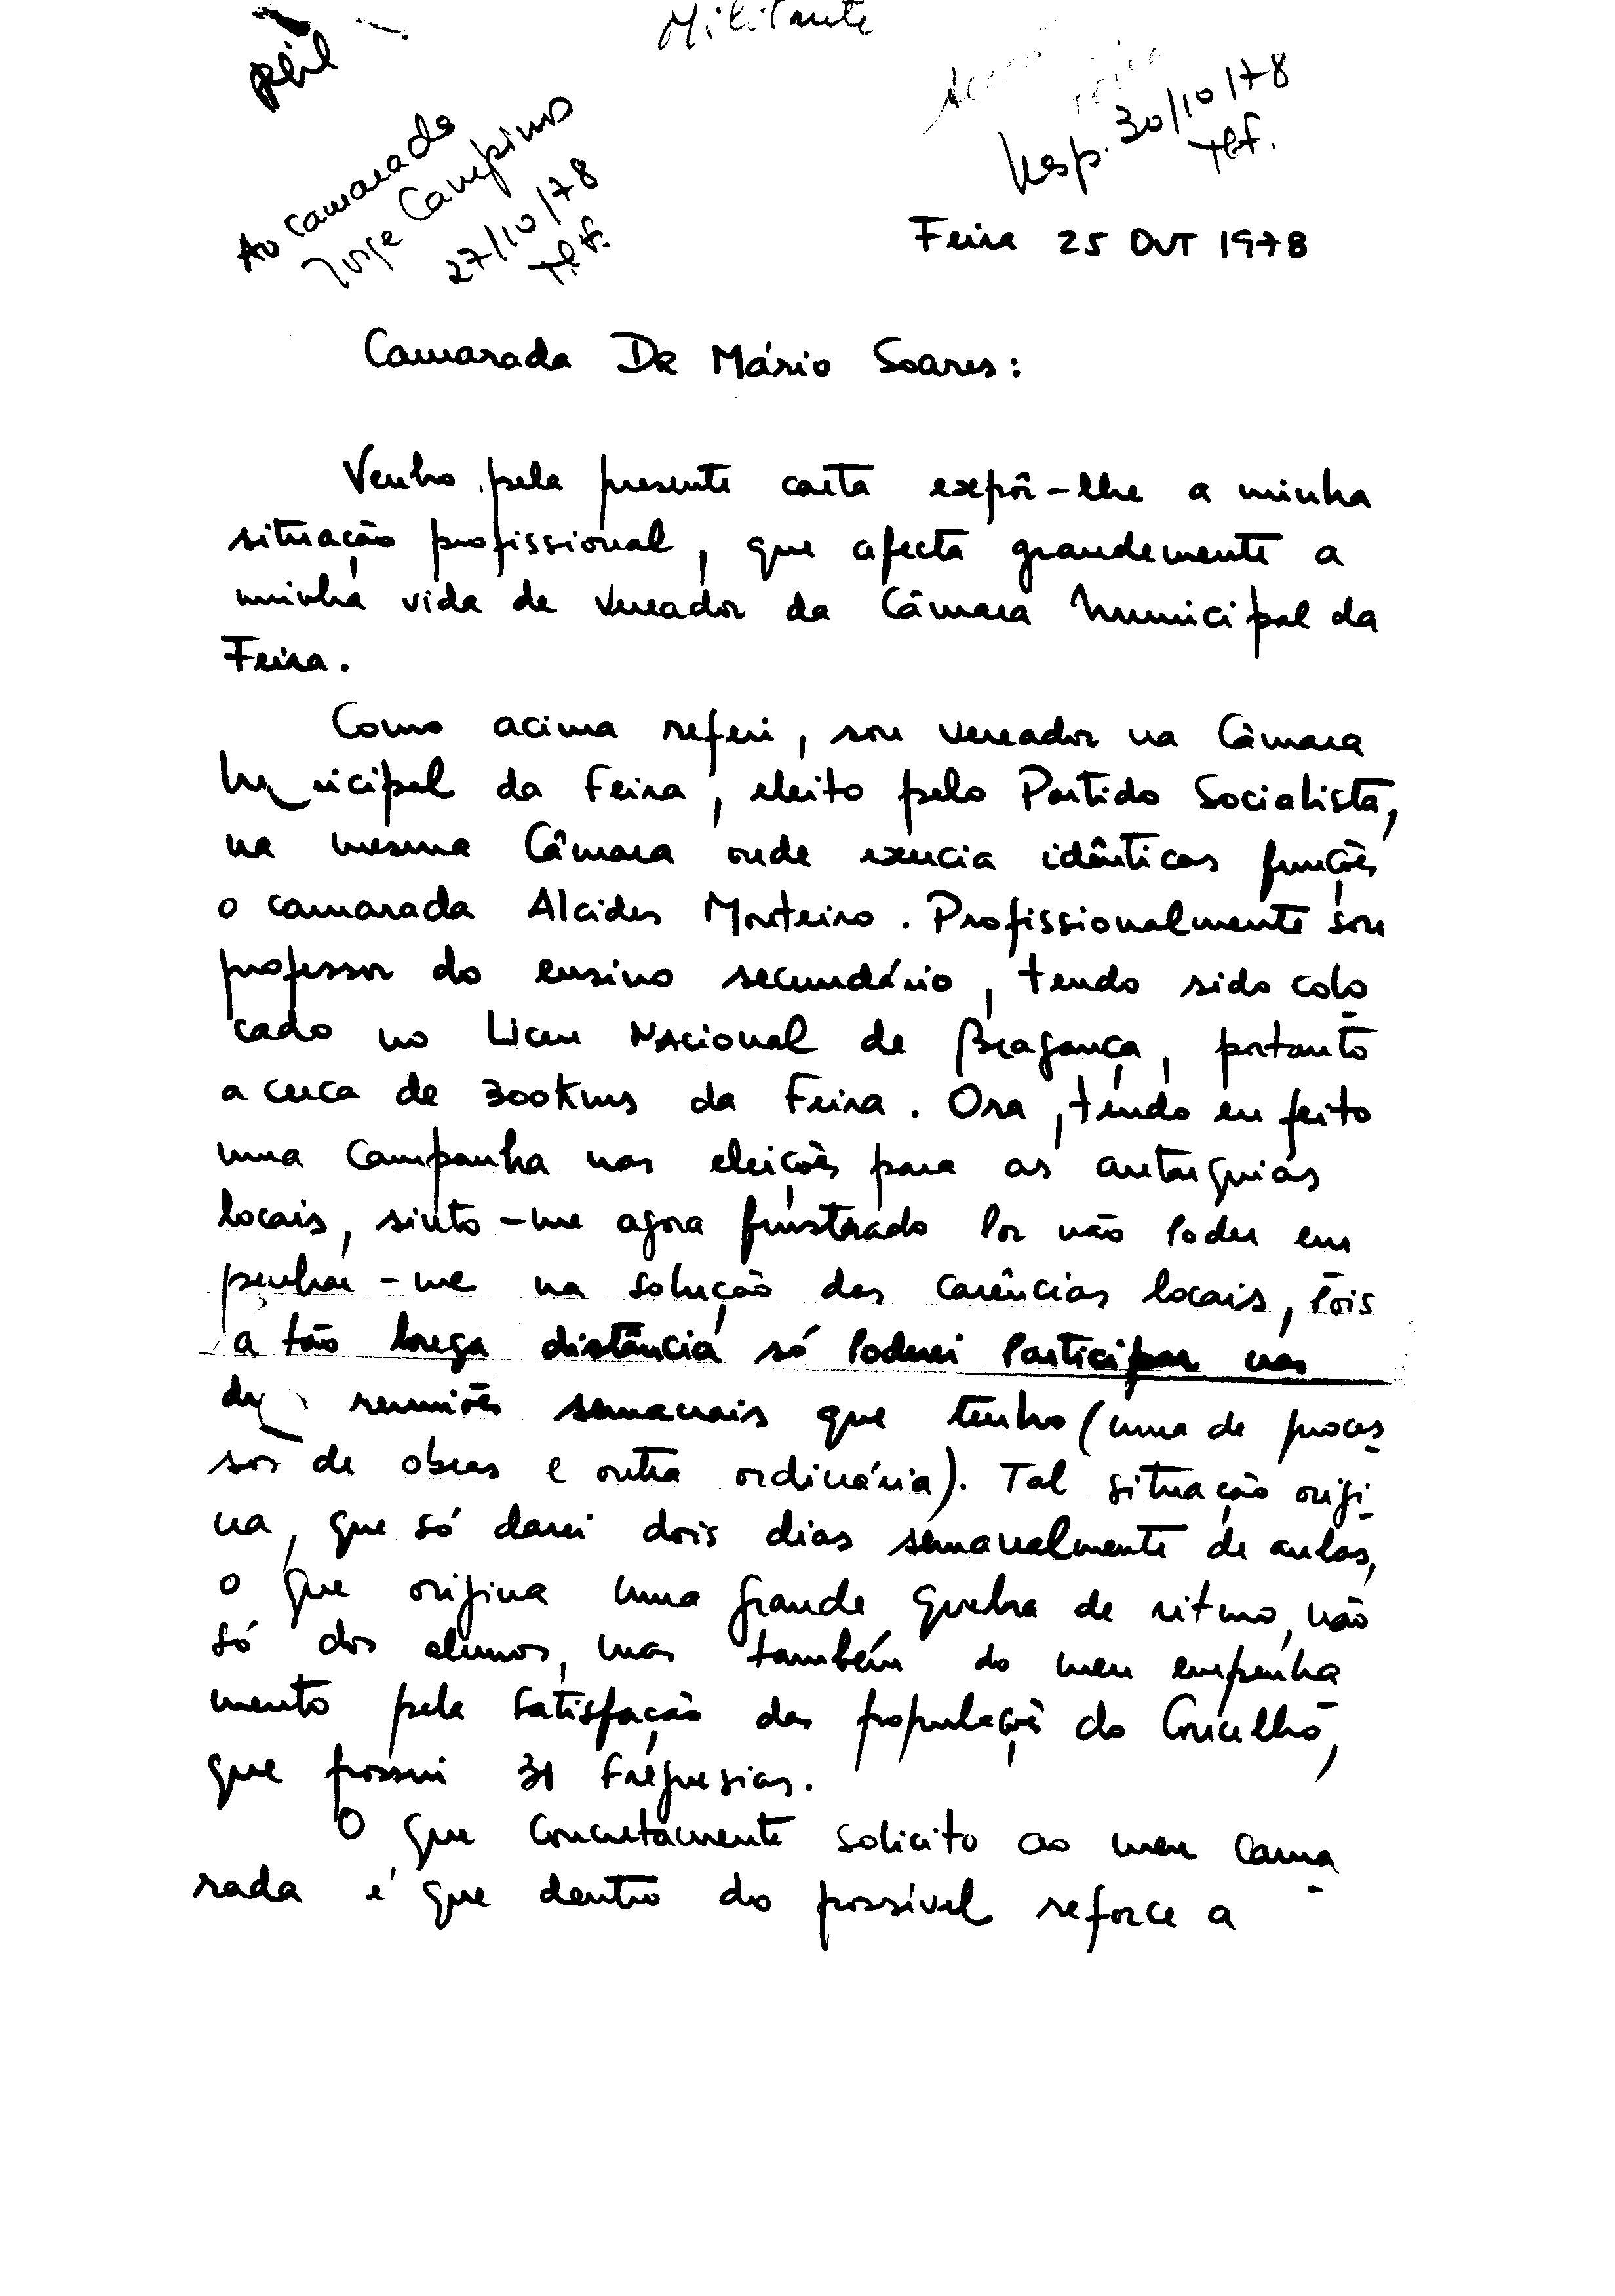 Militante
Ao camarada
Jorge Campinos
27/10/78
Tlf.
Resp. 30/10/78
Tlf.
Feira 25 OUT 1978
Camarada DR Mário Soares:
Venho pela presente carta expôr-lhe a minha
situação profissional, que afecta grandemente a
minha vida de vereador da Câmara Municipal da
Feira.
Como acima referi, sou vereador na Câmara
Municipal da Feira, eleito pelo Partido Socialista,
na mesma Câmara onde exercia idênticas funções
o camarada Alcides Monteiro. Profissionalmente sou
professor do ensino secundário, tendo sido colo
cado no Liceu Nacional de Bragança, portanto
a cerca de 300Kms da Feira. Ora, tendo eu feito
uma campanha nas eleições para as autarquias
locais, sinto-me agora frustrado por não poder em
penhar-me na solução das carências locais, pois
a tão longa distância só poderei participar nas
reuniões semanais que tenho (uma de proces
sos de obras e outra ordinária). Tal situação origi
na, que só darei dois dias semanalmente de aulas,
o que origina uma grande quebra de ritmo, não
só dos alunos, mas também do meu empenha
mento pela satisfação das populações do Concelho,
que possui 31 Freguesias.
O que concretamente solicito ao meu cama
rada é que dentro do possível reforce a